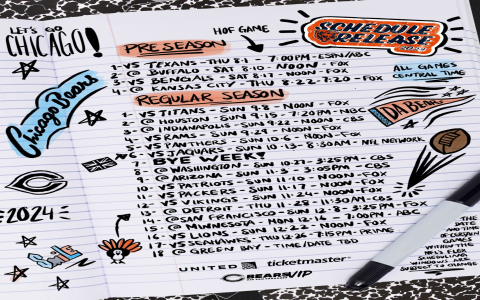 LET'S GO
CHICAGO!
HOF GAME
SCHEDULE
RELEASE
2024
ALL GAMES
CENTRAL TIME
PRESEASON
1- VS TEXANS - THU 8-1 - 7:00PM - ESPN/ABC
2- @ BUFFALO - SAT 8-10 - NOON - FOX
3- VS BENGALS - SAT 8-17 - NOON - FOX
4- @ KANSAS CITY - THU 8-22 - 7:20 - FOX
REGULAR SEASON
1- VS TITANS - SUN 9-8 - NOON - FOX
2- @ HOUSTON - SUN 9-15 - 7:20PM - NBC
3- @ INDIANAPOLIS - SUN 9-22 - NOON - CBS
4- VS RAMS - SUN 9-29 - NOON - FOX
5- VS PANTHERS - SUN 10-6 - NOON - FOX
6- VS JAGUARS - SUN 10-13 - 8:30AM - NFL NETWORK
BYE WEEK
8- @ WASHINGTON - SUN 10-27 - 3:25PM - CBS
9- @ ARIZONA - SUN 11-3 - 3:05PM - CBS
10- VS PATRIOTS - SUN 11-10 - NOON - FOX
11- VS PACKERS - SUN 11-17 - NOON - FOX
12- VS VIKINGS - SUN 11-24 - NOON - FOX
13- @ DETROIT - THU 11-28 - 11:30AM - CBS
14- @ SAN FRANCISCO - SUN 12-8 - 3:25PM - FOX
15- @ MINNESOTA - MON 12-16 - 7:00PM - ABC
16- VS LIONS - SUN 12-22 - NOON - FOX
17- VS SEAHAWKS - THU 12-26 - 7:15PM - PRIME
18- @ GREEN BAY - TIME/DATE TBD
UNITED
ticketmaster
BEARS/VIP
Chicago Bears
C
2024
Smile
DA BEARS
THE DATE
AND TIME
OF CERTAIN
GAMES
WITHIN THE
NFL'S FLEX
SCHEDULING
WINDOWS ARE
SUBJECT TO CHANGE